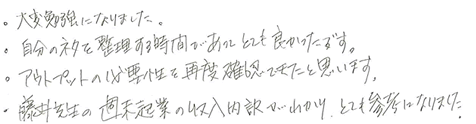 ・大変勉強になりました。
・自分のネタを整理する時間があってとても良かったです。
・アウトプットの必要性を再度確認できたと思います。
・藤井先生の週末起業の収入内訳がわかり、とても参考になりました。